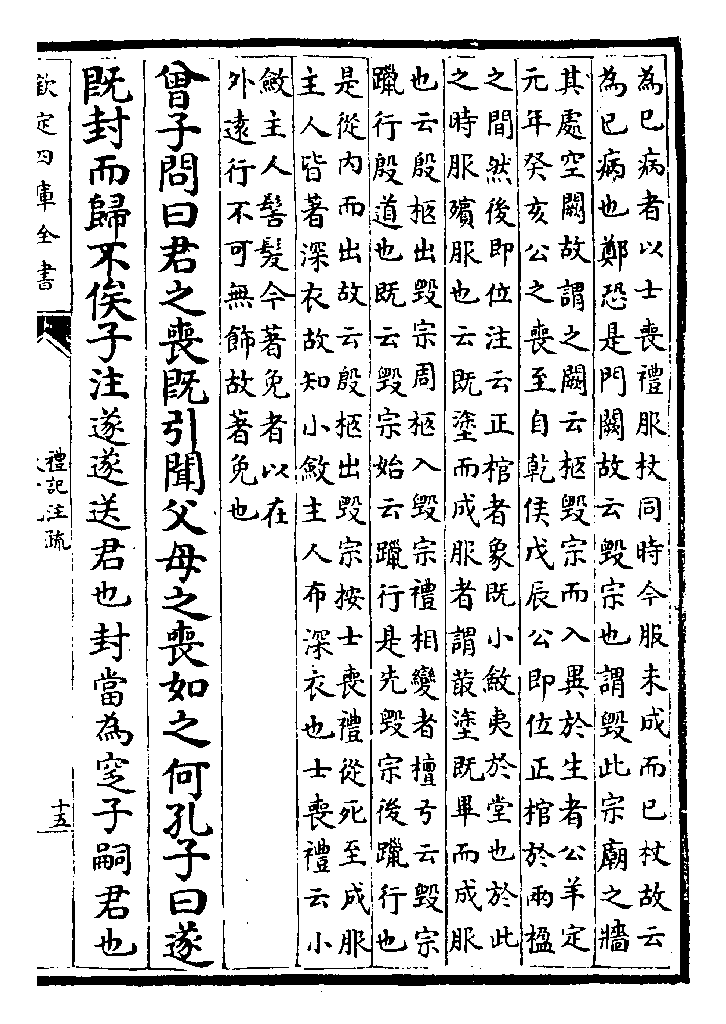 為巳病者以士喪禮服杖同時今服未成而巳杖故云
為巳病也鄭恐是門闕故云毀宗也謂毀此宗廟之牆
其處空闕故謂之闕云柩毀宗而入異於生者公羊定
元年癸亥公之喪至自乾侯戊辰公即位正棺於兩楹
之間然後即位注云正棺者象既小斂夷於堂也於此
之時服殯服也云既塗而成服者謂菆塗既畢而成服
也云殷柩出毀宗周柩入毀宗禮相變者檀弓云毀宗
躐行殷道也既云毀宗始云躐行是先毀宗後躐行也
是從内而出故云殷柩出毀宗按士喪禮從死至成服
主人皆著深衣故知小斂主人布深衣也士喪禮云小
斂主人髻髮今著免者以在
外遠行不可無飾故著免也
曾子問曰君之喪既引聞父母之喪如之何孔子曰遂
既封而歸不俟子注遂遂送君也封當為窆子嗣君也
欽定四庫全書
禮記注疏
十五